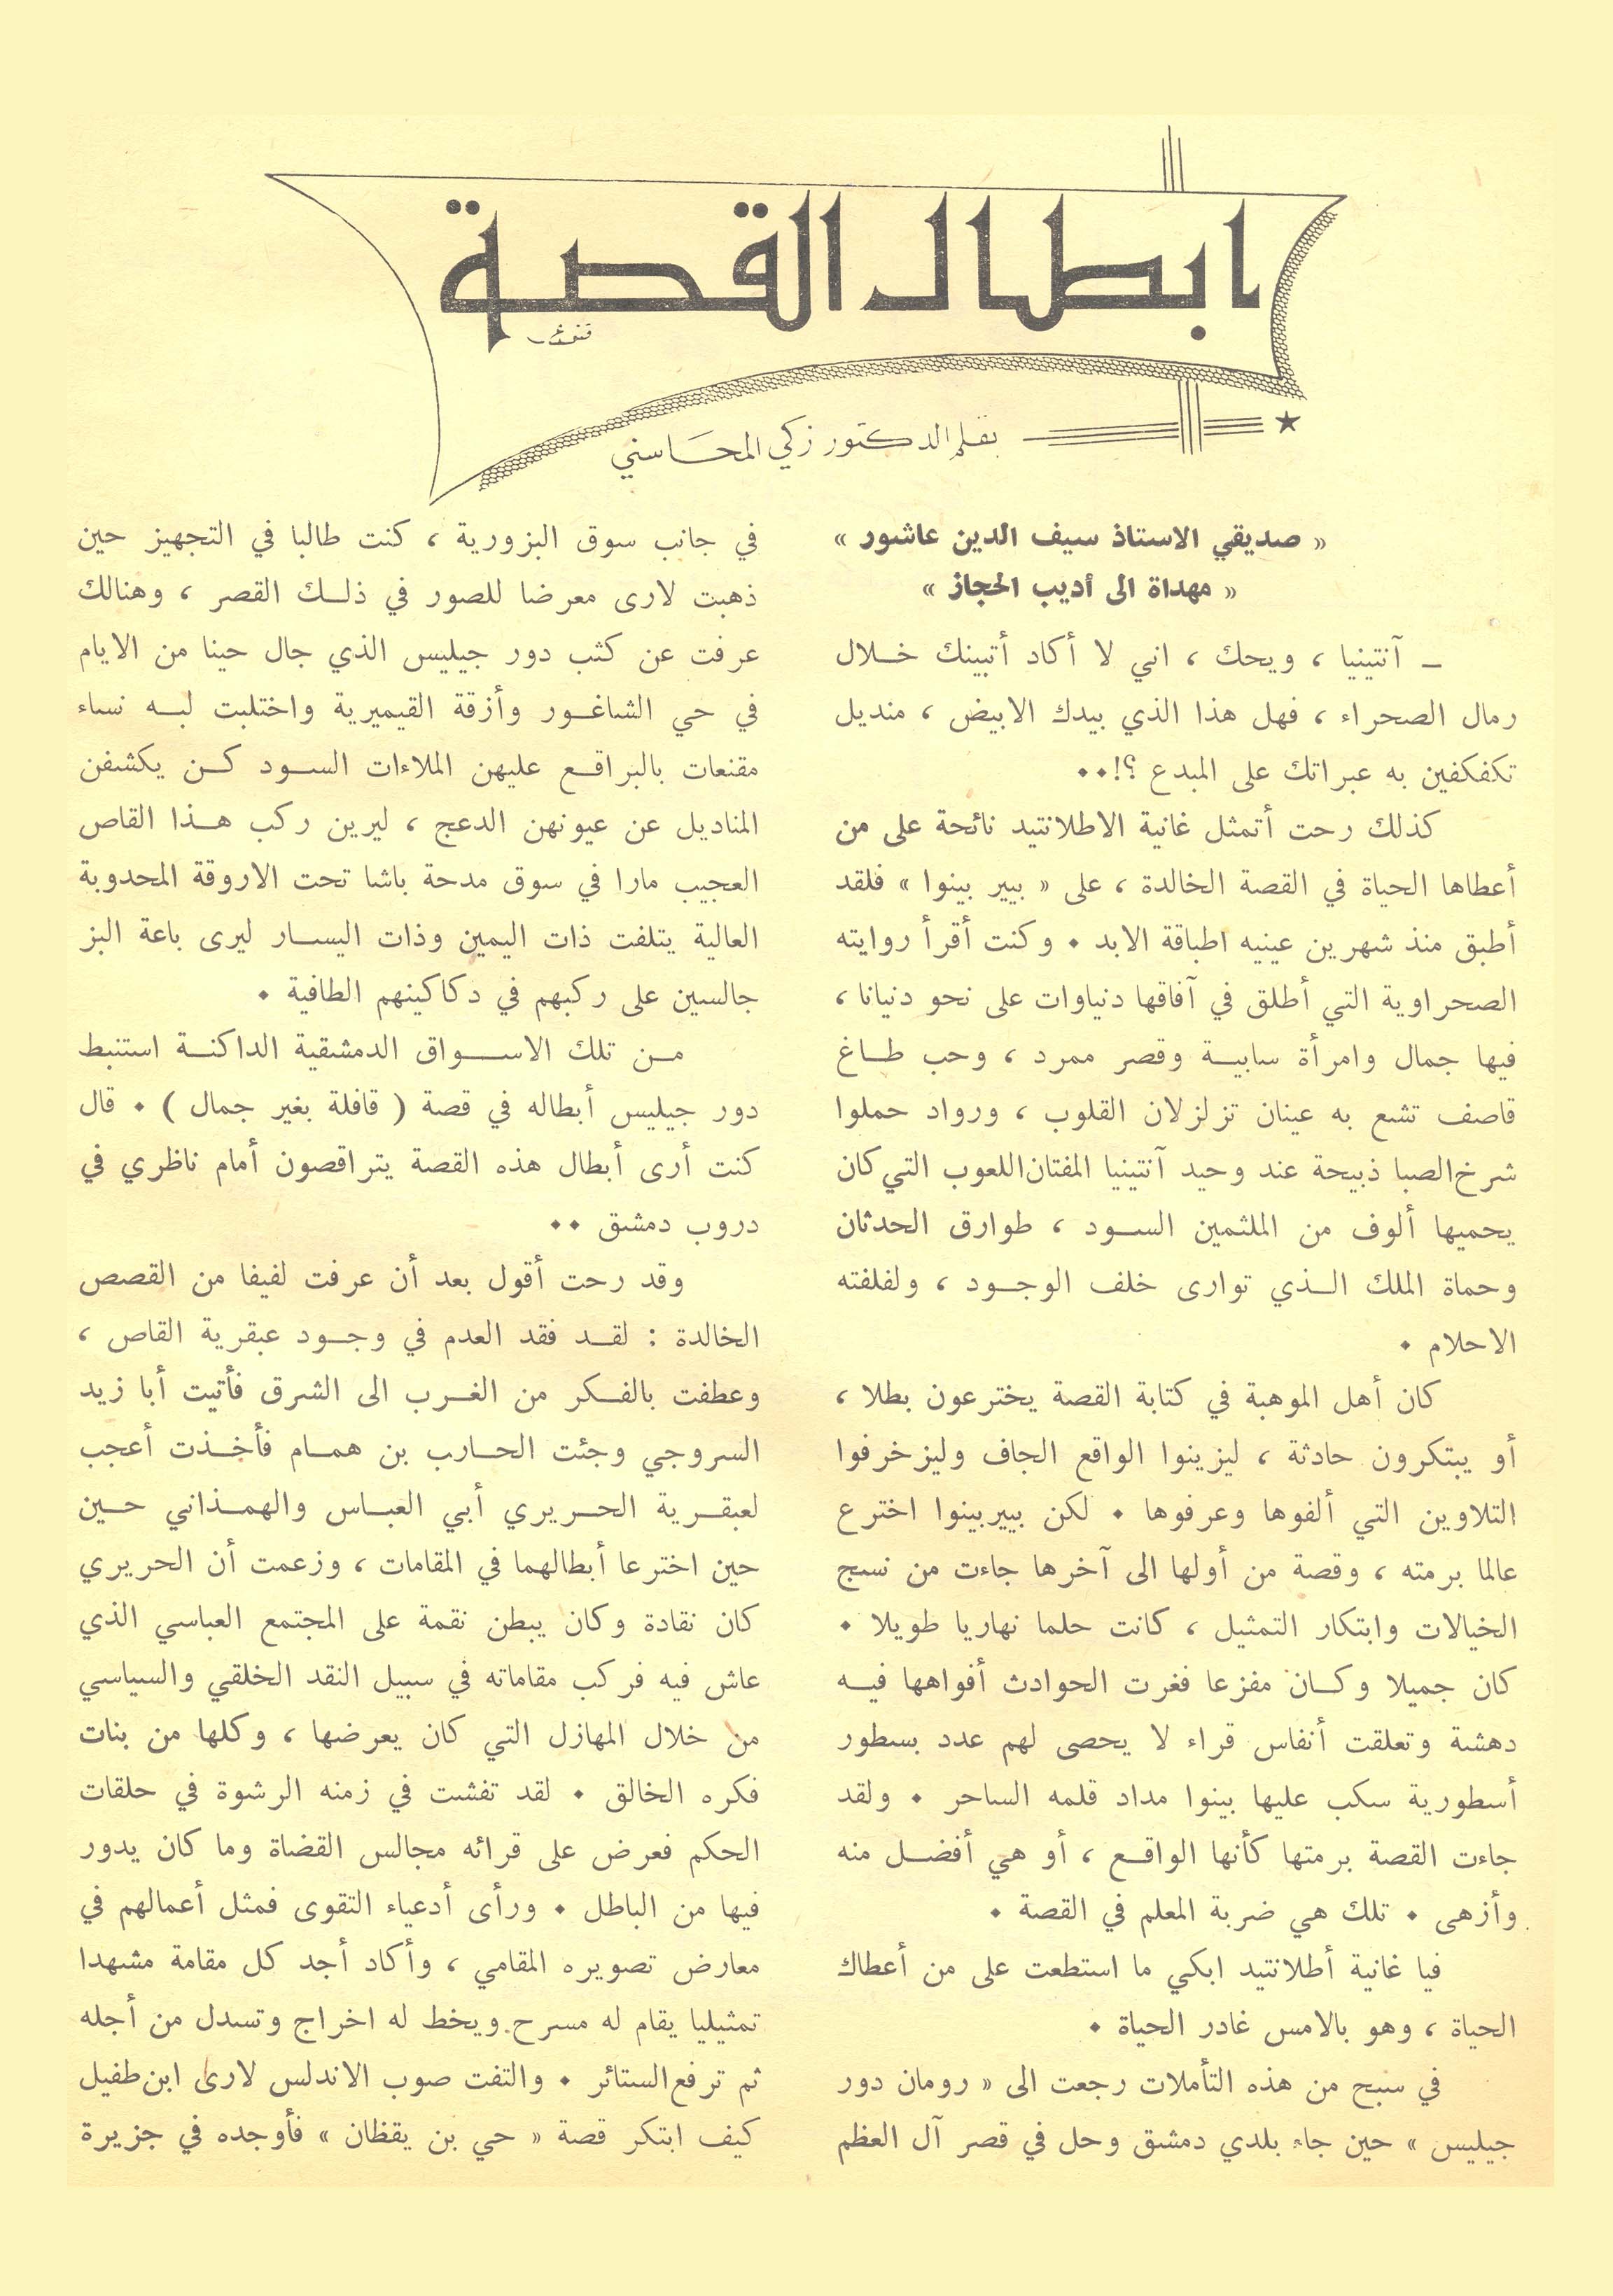 ابطال القصة
بقلم الدكتور زكي المحاسني
« صديقي الاستاذ سيف الدين عاشور »
« مهداة الى أديب الحجاز »
ــ آنتينيا ، ويحك ، اني لا أكاد أتبينك خــلال
رمال الصحراء ، فهل هذا الذي بيدك الابيض ، منديل
تكفكفين به عبراتك على المبدع ؟!٠٠
كذلك رحت أتمثل غانية الاطلانتيد نائحة على من
أعطاها الحياة في القصة الخالدة ، على « بيير بينوا » فلقد
أطبق منذ شهرين عينيه اطباقة الابد ٠ وكنت أقرأ روايته
الصحراوية التي أطلق في آفاقها دنياوات على نحو دنيانا ،
فيها جمال وامرأة سابيــة وقصر ممرد ، وحب طــاغ
قاصف تشع به عينان تزلزلان القلوب ، ورواد حملوا
شرخ الصبا ذبيحة عند وحيد آنتينيا المفتان اللعوب التي كان
يحميها ألوف من الملثمين الســود ، طوارق الحدثان
وحماة الملك الــذي توارى خلف الوجــود ، ولفلفته
الاحلام ٠
كان أهل الموهبة في كتابة القصة يخترعون بطلا ،
أو يبتكرون حادثة ، ليزينوا الواقع الجاف وليزخرفوا
التلاوين التي ألفوها وعرفوها ٠ لكن بييربينوا اخترع
عالما برمته ، وقصة من أولها الى آخرها جاءت من نسج
الخيالات وابتكار التمثيل ، كانت حلما نهاريا طويلا ٠
كان جميلا وكــان مفزعا فغرت الحوادث أفواهها فيــه
دهشة وتعلقت أنفاس قراء لا يحصى لهم عدد بسطور
أسطورية سكب عليها بينوا مداد قلمه الساحر ٠ ولقد
جاءت القصة برمتها كأنها الواقــع ، أو هي أفضــل منه
وأزهى ٠ تلك هي ضربة المعلم في القصة ٠
فيا غانية أطلانتيد ابكي ما استطعت على من أعطاك
الحياة ، وهو بالامس غادر الحياة ٠
في سبح من هذه التأملات رجعت الى « رومان دور
جيليس » حين جاء بلدي دمشق وحل في قصر آل العظم
في جانب سوق البزورية ، كنت طالبا في التجهيز حين
ذهبت لارى معرضا للصور في ذلــك القصر ، وهنالك
عرفت عن كثب دور جيليس الذي جال حينا من الايام
في حي الشاغــور وأزقة القيميرية واختلبت لبــه نساء
مقنعات بالبراقــع عليهن الملاءات الســود كــن يكشفن
المناديل عن عيونهن الدعج ، ليرين ركب هــذا القاص
العجيب مارا في سوق مدحة باشا تحت الاروقة المحدوبة
العالية يتلفت ذات اليمين وذات اليســار ليرى باعة البز
جالسين على ركبهم في دكاكينهم الطافية ٠
مــن تلك الاســواق الدمشقية الداكنــة استنبط
دور جيليس أبطاله في قصة ( قافلة بغير جمال ) ٠ قال
كنت أرى أبطال هذه القصة يتراقصون أمام ناظري في
دروب دمشق ٠٠
وقد رحت أقول بعد أن عرفت لفيفا من القصص
الخالدة : لقــد فقد العدم في وجــود عبقرية القاص ،
وعطفت بالفــكر من الغــرب الى الشرق فأتيت أبا زيد
السروجي وجئت الحــارب بن همــام فأخــذت أعجب
لعبقــرية الحــريري أبي العبــاس والهمــذاني حــين
حين اخترعا أبطالهما في المقامات ، وزعمت أن الحريري
كان نقادة وكان يبطن نقمة على المجتمع العباسي الذي
عاش فيه فركب مقاماته في سبيل النقد الخلقي والسياسي
من خلال المهازل التي كان يعرضها ، وكلها من بنات
فكره الخالق ٠ لقد تفشت في زمنه الرشوة في حلقات
الحكم فعرض على قرائه مجالس القضاة وما كان يدور
فيها من الباطل ٠ ورأى أدعياء التقوى فمثل أعمالهم في
معارض تصويره المقامي ، وأكاد أجد كل مقامة مشهدا
تمثيليا يقام له مسرح ويخط له اخراج وتسدل من أجله
ثم ترفع الستائر ٠ والتفت صوب الاندلس لارى ابن طفيل
كيف ابتكر قصة « حي بن يقظان » فأوجده في جزيرة